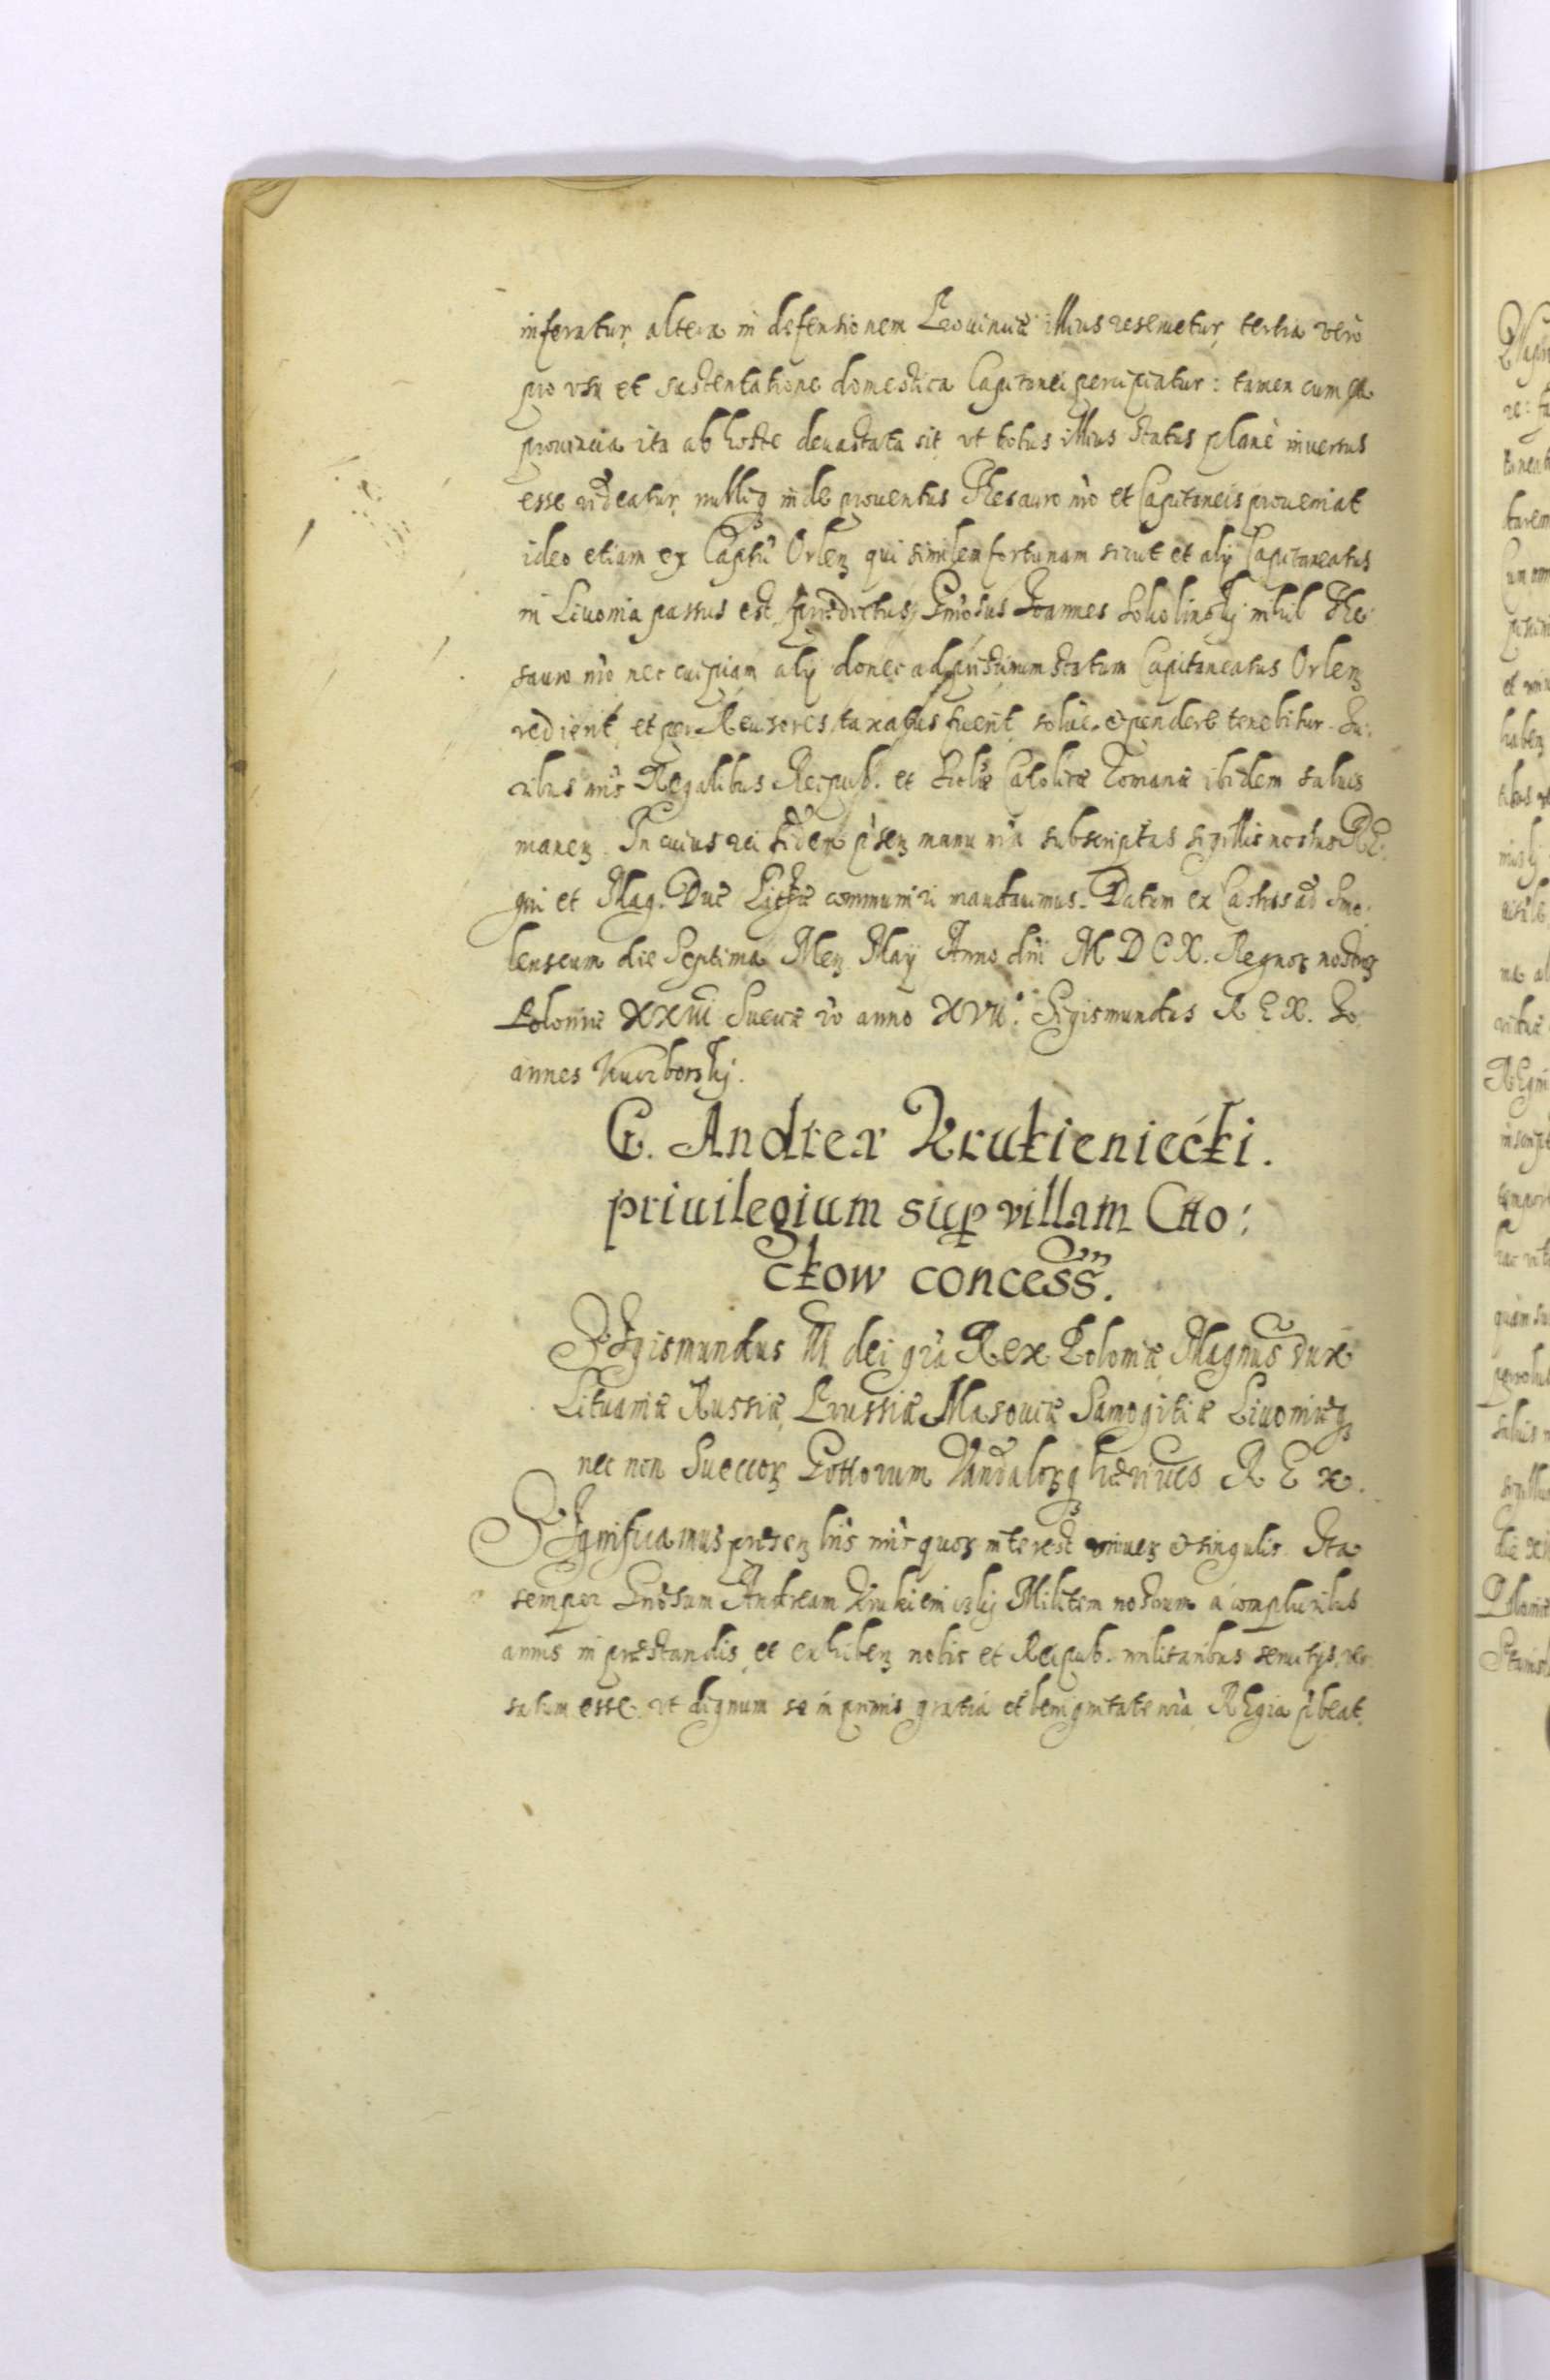 inferatur, altera in defensionem Provinciæ illius reseruetur, tertia verò
pro vsu et sustentatione domestica Capitanei percipiatur: tamen cum ea
prouincia ita ab hoste deuastata sit, vt totus illius status planè inuersus
esse videatur, nullig inde prouentus Thesauro nrõ et Capitaneis proueniat
ideo etiam ex Captũ Orlen̄ qui similem fortunam sicut et alij Capitaneatus
in Liuonia passus est, prædictus Gnõsus Joannes Sokolinskij nihil The
sauro nrõ nec cuipiam alij donec ad pristinum statum Capitaneatus Orlen̄
redierit, et per Reuisores taxatus fuerit, soluẽ. & pendere tenebitur. Iu:
ribus nrĩs Regalibus Reipub. et Ecclæ Catolicæ Romanæ ibidem saluis
manen̄. In cuius rei fidem p̃sen̄ manu nrã subscriptas sigillis nostris RE
gni et Mag. Duc Lithuæ communiri mandauimus. Datum ex Castris ad Smo:
lenscum die Septima Men̄ Maÿ Anno dñi MDCX. Regnor nostror
Poloniæ XXIII Sueciæ vo anno XVII. Sigismundus REX. Jo
annes Kuczborskij.
G. Andrea Krukieniećki.
priuilegium sup villam Otto:
ckow concess̃.
SIgismundus III dei grã Rex Poloniæ, Magnus dux
Lituaniæ Russiæ, Prussiæ Masouiæ Samogitiæ Liuoniæq
nec non Suecor Gottorum Vandalorq hæritus REx.
SIgnificamus præsen̄ lrĩs nrĩs quor interest vniuer & singulis. Ita
semper Gnõsum Andream Krukieniczkij Militem nostrum à compluribus
annis in præstandis, et exhiben̄ nobis et Reipub. militaribus seruitijs, ver
satum esse. vt dignum se in primis gratiâ et benignitate nrã REgia p̃beat.